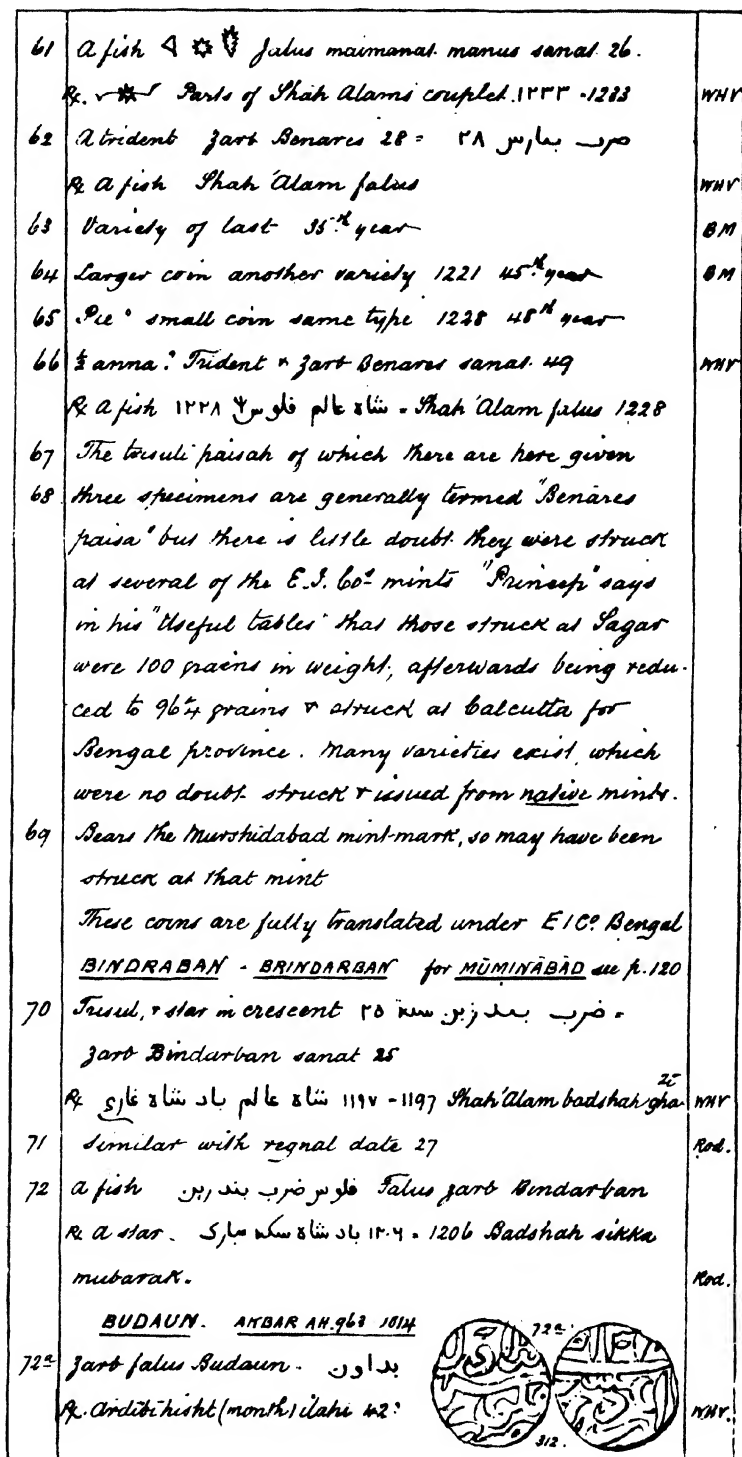 61 A fish falus maimanat manus sanat 26.
R. Parts of Shah Alams couplet. ١٢٣٣ - 1233 WHV
62 A trident zarb Benares 28 = ضرب بنارس ٢٨
R A fish Shah 'Alam falus WHV
63 Variety of last 35th year BM
64 Larger coin another variety 1221 45th year BM
65 Pie? small coin same type 1228 48th year
66 ½ anna? Trident & zarb Benares sanat 49 WHV
R A fish شاه عالم فلوس ١٢٢٨ = Shah 'Alam falus 1228
67 The trisuli paisah of which there are here given
68 three specimens are generally termed "Benares
paisa" but there is little doubt they were struck
at several of the E.I. Cos mints "Prinsep" says
in his "Useful tables" that those struck at Sagar
were 100 grains in weight, afterwards being redu-
ced to 96¼ grains & struck at Calcutta for
Bengal province. Many varieties exist, which
were no doubt struck & issued from native mints.
69 Bears the Murshidabad mint-mark, so may have been
struck at that mint
These coins are fully translated under E I Co. Bengal
BINDRABAN - BRINDARBAN for MŪMINĀBĀD see p. 120
70 Trisul, & star in crescent ضرب بندربن سنة ٢٥ =
zarb Bindarban sanat 25
R شاه عالم باد شاه غازي ١١٩٧ - 1197 Shah 'Alam badshah ghazi WHV
71 Similar with regnal date 27 Rod.
72 A fish فلوس ضرب بندربن Falus zarb Bindarban
R A star. باد شاه سكه مبارك ١٢٠٦ = 1206 Badshah sikka
mubarak. Rod.
BUDAUN. AKBAR AH. 963 1014
72a Zarb falus Budaun. بداون 72a
R. Ardibihisht (month) ilahi 42? WHV.
312.